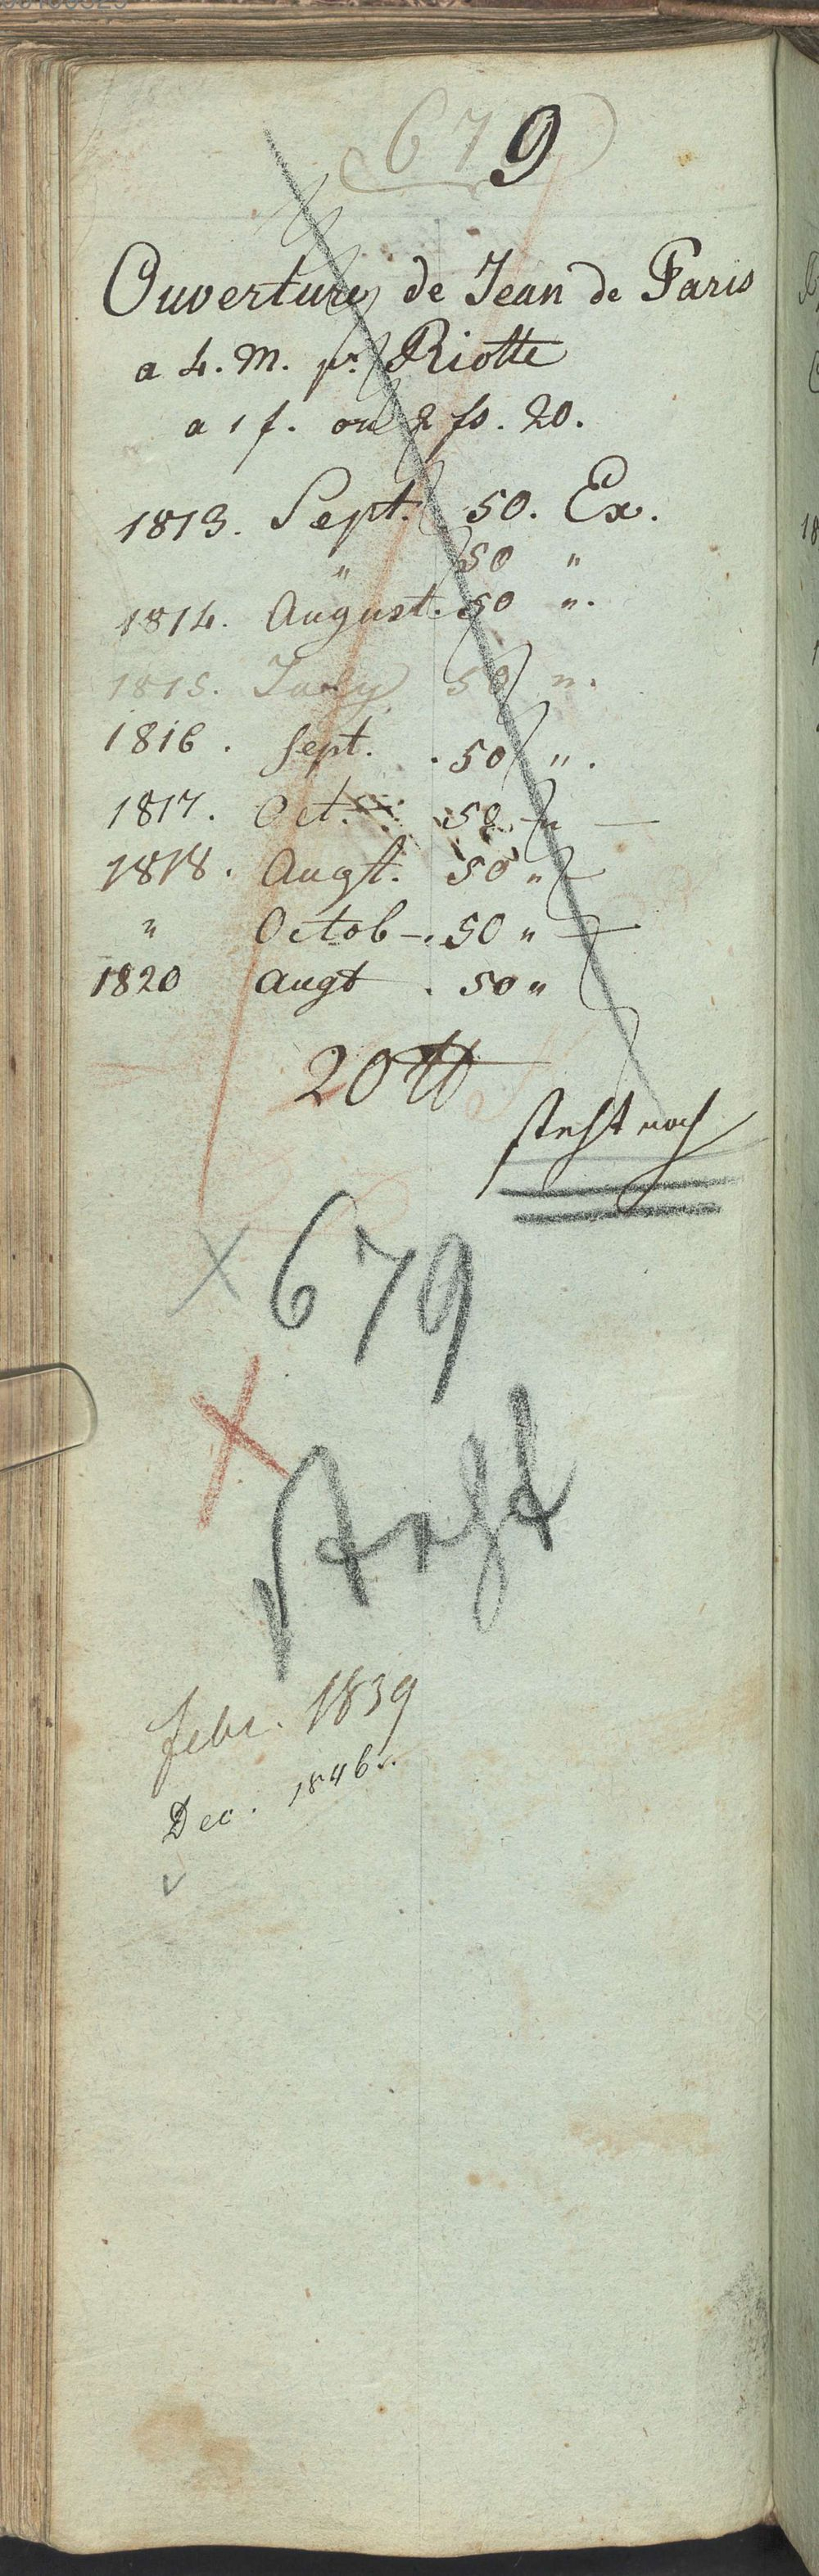 679
Ouverture de Jean de Paris
a 4. M. pr. Riotte
a 1 f. ou 2 fs. 20.
1813. Sept. 50. Ex.
" 50 "
1814. August. 50 ".
1815. July 50 ".
1816. Sept. . 50 ".
1817. Oct. 50 " —
1818. Augt. 50 " —
" Octob —. 50 " —
1820 Augt . 50 "
20 ℔
steht noch
x 679
x
steht
febr. 1839
Dec. 1846.